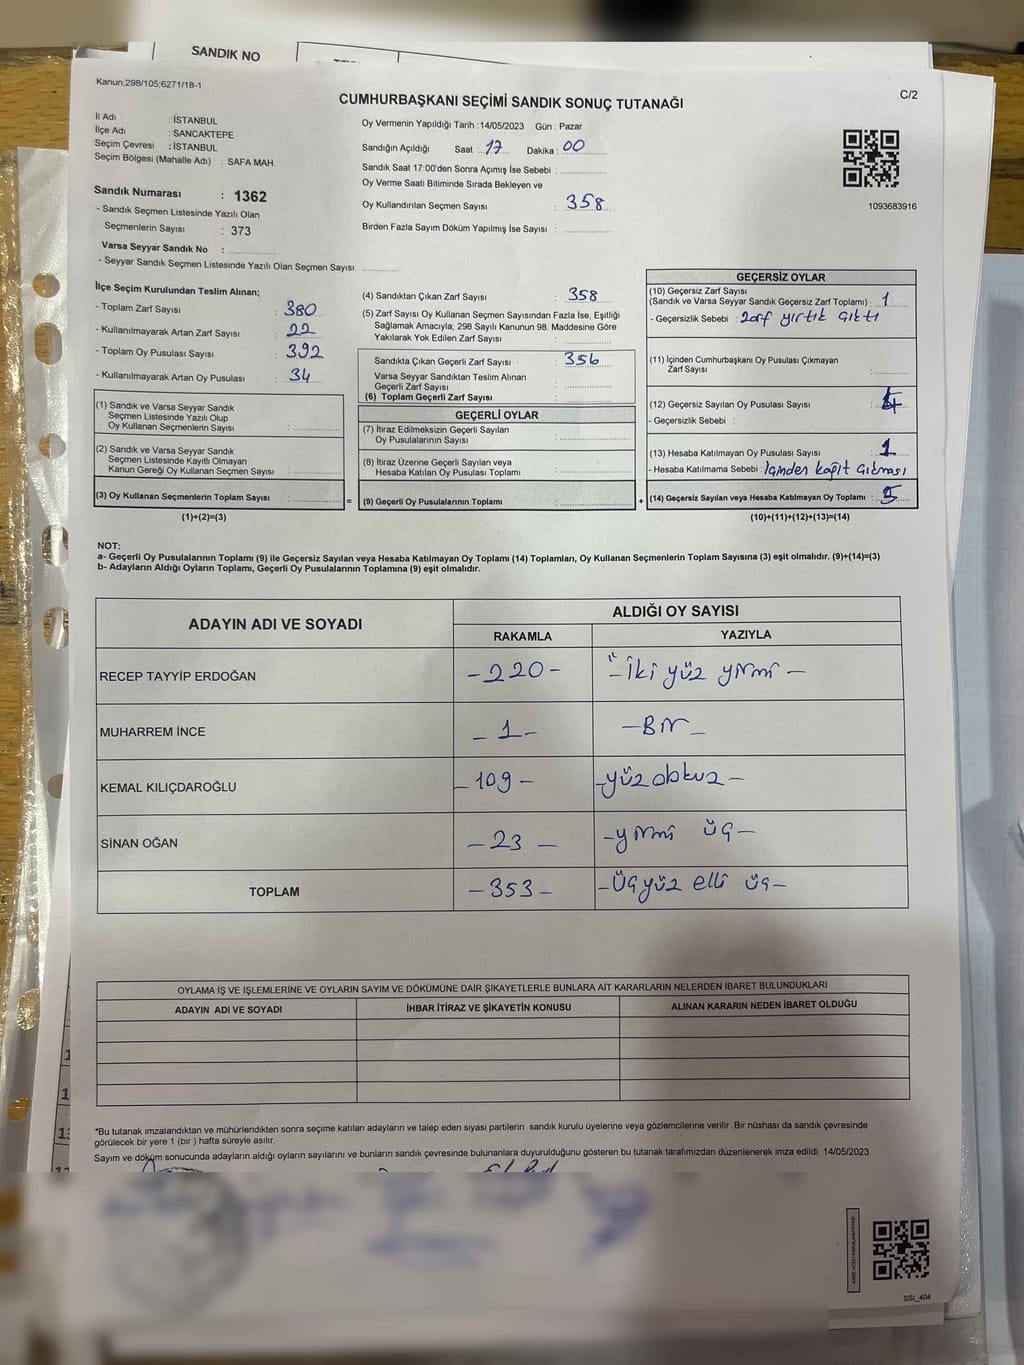 SANDIK NO
Kanun;298/105;6271/18-1
C/2
CUMHURBAŞKANI SEÇİMİ SANDIK SONUÇ TUTANAĞI
İl Adı : İSTANBUL
İlçe Adı : SANCAKTEPE
Seçim Çevresi : İSTANBUL
Seçim Bölgesi (Mahalle Adı) : SAFA MAH.
Sandık Numarası : 1362
- Sandık Seçmen Listesinde Yazılı Olan
Seçmenlerin Sayısı : 373
Varsa Seyyar Sandık No :
- Seyyar Sandık Seçmen Listesinde Yazılı Olan Seçmen Sayısı:
Oy Vermenin Yapıldığı Tarih :14/05/2023 Gün : Pazar
Sandığın Açıldığı Saat : 17 Dakika : 00
Sandık Saat 17:00'den Sonra Açımış İse Sebebi :
Oy Verme Saati Bitiminde Sırada Bekleyen ve
Oy Kullandırılan Seçmen Sayısı : 358
Birden Fazla Sayım Döküm Yapılmış İse Sayısı :
1093683916
İlçe Seçim Kurulundan Teslim Alınan;
- Toplam Zarf Sayısı : 380
- Kullanılmayarak Artan Zarf Sayısı : 22
- Toplam Oy Pusulası Sayısı : 392
- Kullanılmayarak Artan Oy Pusulası : 34
(1) Sandık ve Varsa Seyyar Sandık
Seçmen Listesinde Yazılı Olup
Oy Kullanan Seçmenlerin Sayısı :
(2) Sandık ve Varsa Seyyar Sandık
Seçmen Listesinde Kayıtlı Olmayan
Kanun Gereği Oy Kullanan Seçmen Sayısı :
(3) Oy Kullanan Seçmenlerin Toplam Sayısı : =
(1)+(2)=(3)
(4) Sandıktan Çıkan Zarf Sayısı : 358
(5) Zarf Sayısı Oy Kullanan Seçmen Sayısından Fazla İse, Eşitliği
Sağlamak Amacıyla; 298 Sayılı Kanunun 98. Maddesine Göre
Yakılarak Yok Edilen Zarf Sayısı :
Sandıkta Çıkan Geçerli Zarf Sayısı : 356
Varsa Seyyar Sandıktan Teslim Alınan
Geçerli Zarf Sayısı :
(6) Toplam Geçerli Zarf Sayısı :
GEÇERLİ OYLAR
(7) İtiraz Edilmeksizin Geçerli Sayılan
Oy Pusulalarının Sayısı :
(8) İtiraz Üzerine Geçerli Sayılan veya
Hesaba Katılan Oy Pusulası Toplamı :
(9) Geçerli Oy Pusulalarının Toplamı : +
GEÇERSİZ OYLAR
(10) Geçersiz Zarf Sayısı
(Sandık ve Varsa Seyyar Sandık Geçersiz Zarf Toplamı) : 1
- Geçersizlik Sebebi : Zarf yırtık çıktı
(11) İçinden Cumhurbaşkanı Oy Pusulası Çıkmayan
Zarf Sayısı :
(12) Geçersiz Sayılan Oy Pusulası Sayısı :
- Geçersizlik Sebebi :
(13) Hesaba Katılmayan Oy Pusulası Sayısı : 1
- Hesaba Katılmama Sebebi : İçinden kağıt çıkması
(14) Geçersiz Sayılan veya Hesaba Katılmayan Oy Toplamı : 5
(10)+(11)+(12)+(13)=(14)
NOT:
a- Geçerli Oy Pusulalarının Toplamı (9) ile Geçersiz Sayılan veya Hesaba Katılmayan Oy Toplamı (14) Toplamları, Oy Kullanan Seçmenlerin Toplam Sayısına (3) eşit olmalıdır. (9)+(14)=(3)
b- Adayların Aldığı Oyların Toplamı, Geçerli Oy Pusulalarının Toplamına (9) eşit olmalıdır.
ADAYIN ADI VE SOYADI
ALDIĞI OY SAYISI
RAKAMLA YAZIYLA
RECEP TAYYİP ERDOĞAN -220- - İki yüz yirmi -
MUHARREM İNCE - 1 - - Bir -
KEMAL KILIÇDAROĞLU - 109 - - yüz dokuz -
SİNAN OĞAN - 23 - - yirmi üç -
TOPLAM - 353 - - Üçyüz elli üç -
OYLAMA İŞ VE İŞLEMLERİNE VE OYLARIN SAYIM VE DÖKÜMÜNE DAİR ŞİKAYETLERLE BUNLARA AİT KARARLARIN NELERDEN İBARET BULUNDUKLARI
ADAYIN ADI VE SOYADI İHBAR İTİRAZ VE ŞİKAYETİN KONUSU ALINAN KARARIN NEDEN İBARET OLDUĞU
*Bu tutanak imzalandıktan ve mühürlendikten sonra seçime katılan adayların ve talep eden siyasi partilerin sandık kurulu üyelerine veya gözlemcilerine verilir .Bir nüshası da sandık çevresinde
görülecek bir yere 1 (bir ) hafta süreyle asılır.
Sayım ve döküm sonucunda adayların aldığı oyların sayılarını ve bunların sandık çevresinde bulunanlara duyurulduğunu gösteren bu tutanak tarafımızdan düzenlenerek imza edildi. 14/05/2023
SSI_404